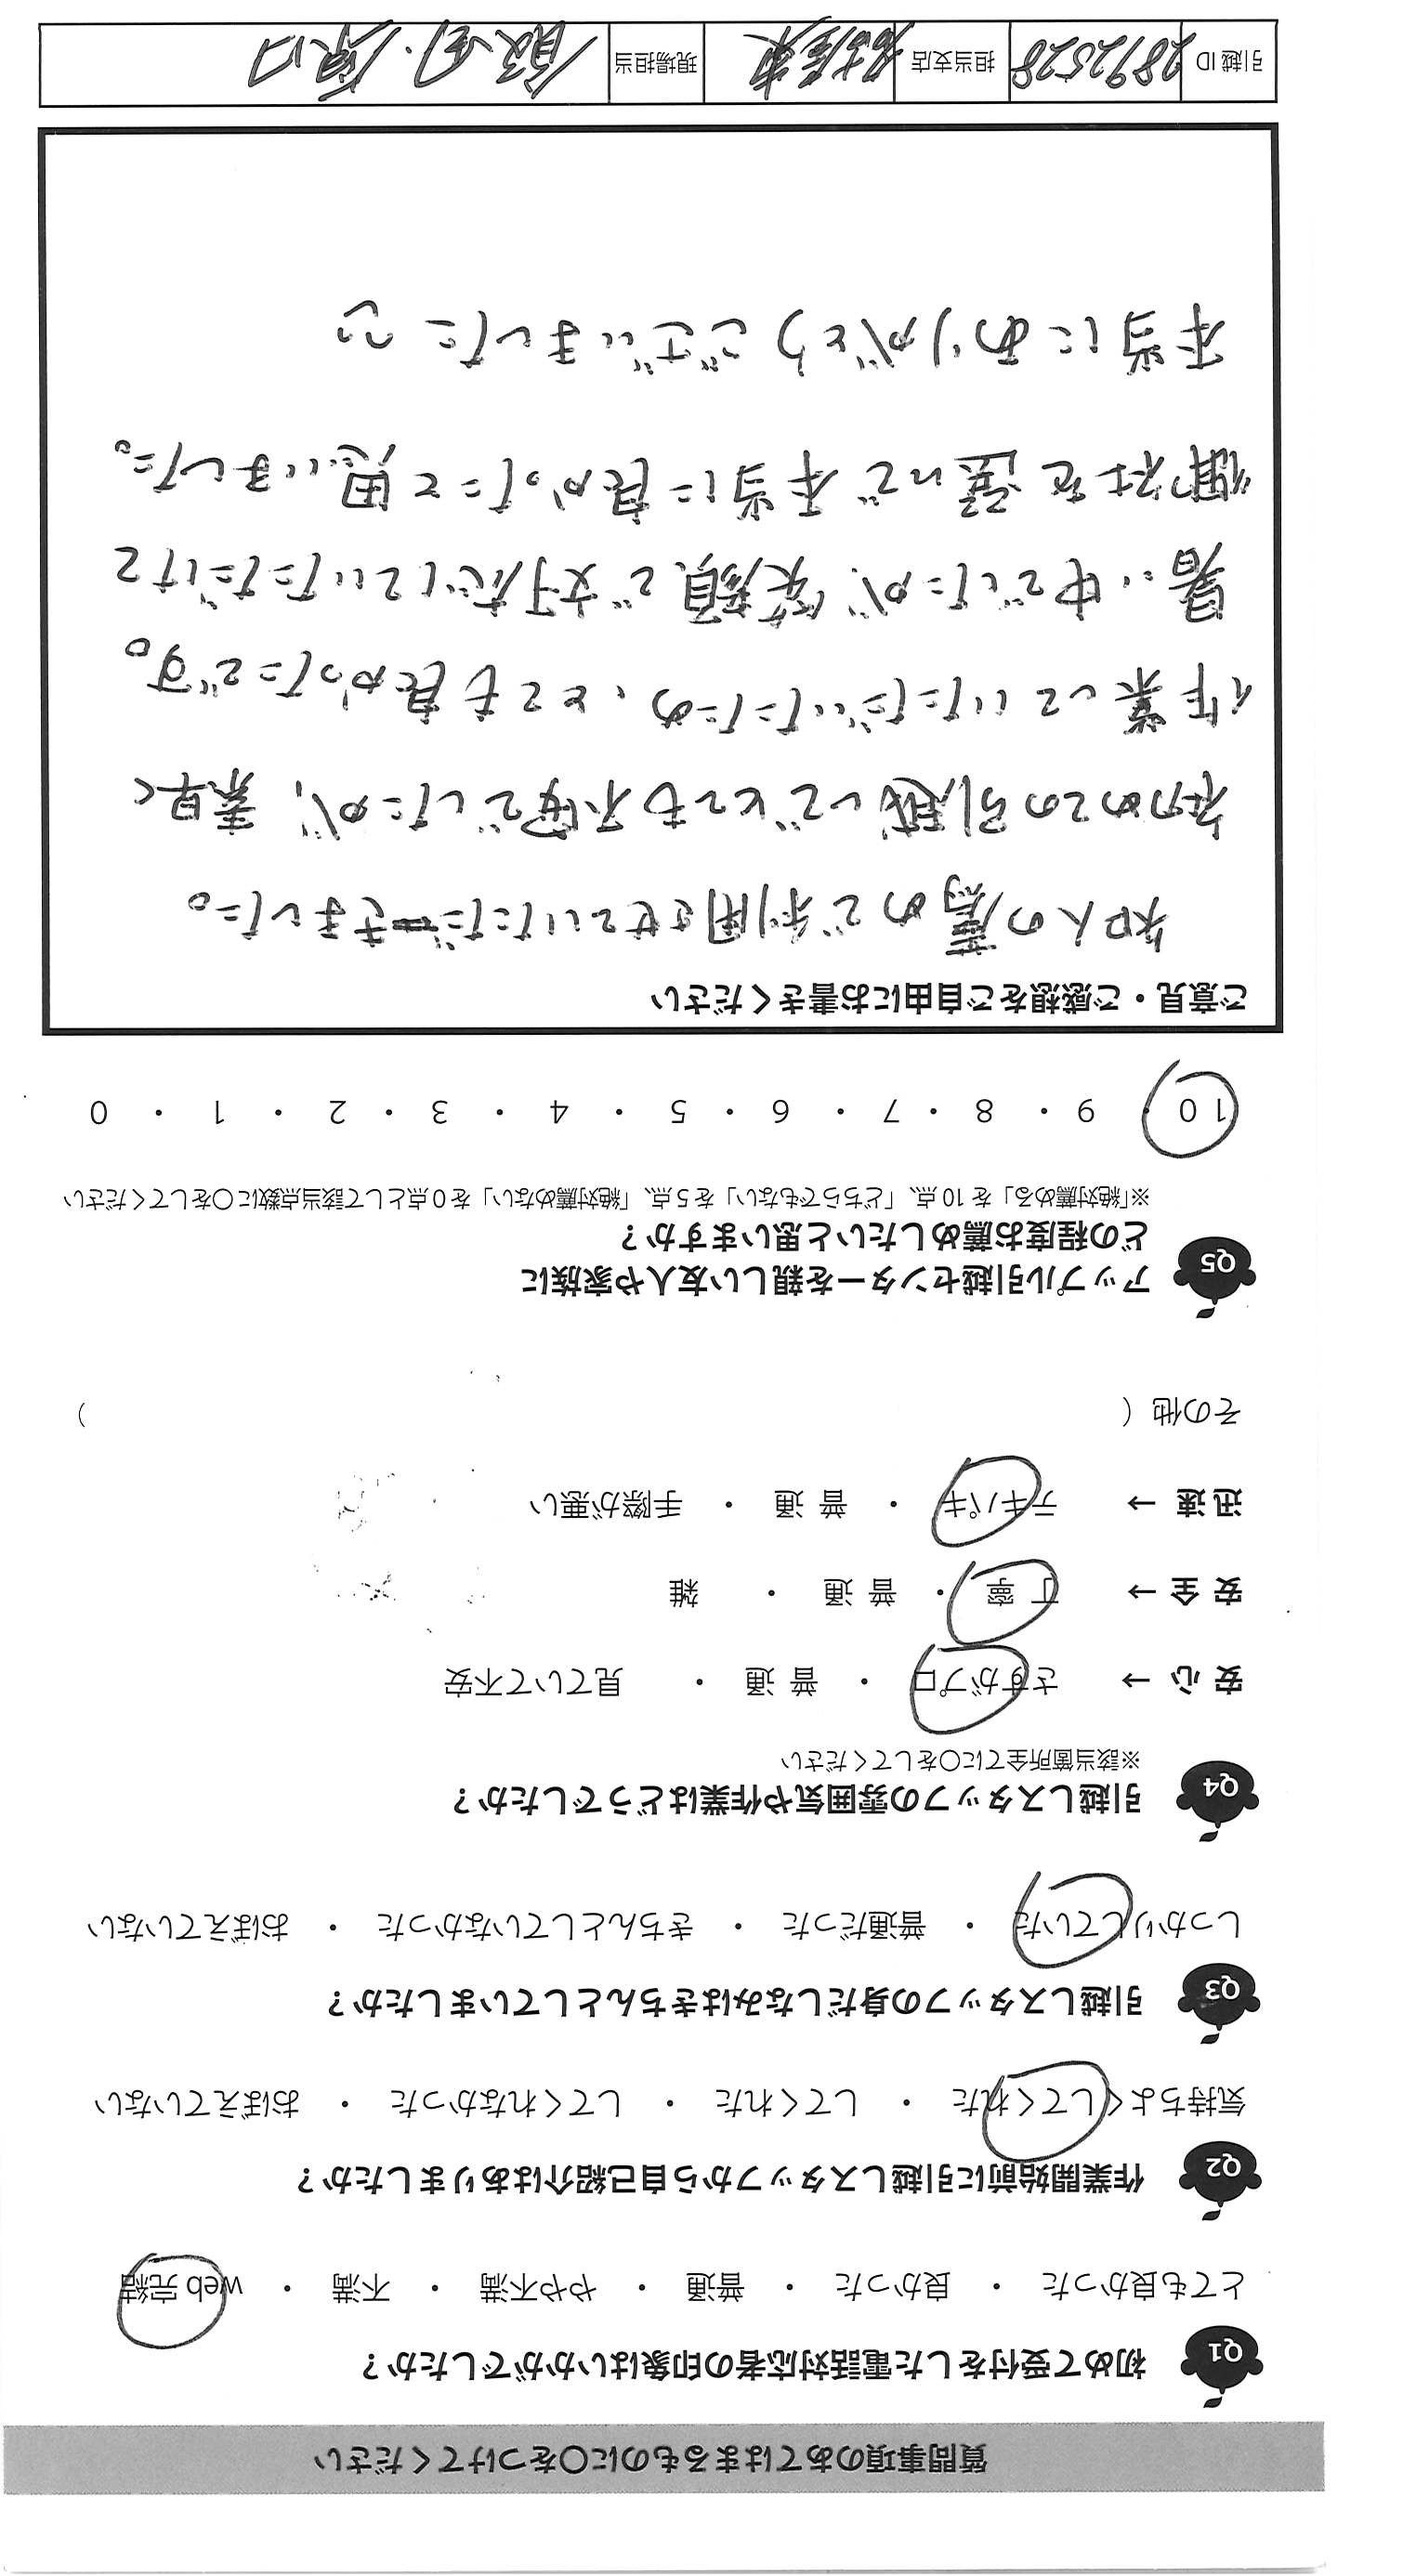 質問事項のあてはまるものに〇をつけてください
Q1 初めて受付をした電話対応者の印象はいかがでしたか？
とても良かった ・ 良かった ・ 普通 ・ やや不満 ・ 不満 ・ web 完結
Q2 作業開始前に引越しスタッフから自己紹介はありましたか？
気持ちよくしてくれた ・ してくれた ・ してくれなかった ・ おぼえていない
Q3 引越しスタッフの身だしなみはきちんとしていましたか？
しっかりしていた ・ 普通だった ・ きちんとしていなかった ・ おぼえていない
Q4 引越しスタッフの雰囲気や作業はどうでしたか？
※該当箇所全てに〇をしてください
安心 → さすがプロ ・ 普通 ・ 見ていて不安
安全 → 丁寧 ・ 普通 ・ 雑
迅速 → テキパキ ・ 普通 ・ 手際が悪い
その他（ ）
Q5 アップル引越センターを親しい友人や家族に
どの程度お薦めしたいと思いますか？
※「絶対薦める」を10点、「どちらでもない」を5点、「絶対薦めない」を0点として該当点数に〇をしてください
10 ・ 9 ・ 8 ・ 7 ・ 6 ・ 5 ・ 4 ・ 3 ・ 2 ・ 1 ・ 0
ご意見・ご感想をご自由にお書きください
知人の薦めで利用させていただきました。
初めての引越しでとても不安でしたが、素早く
作業していただいたため、とても良かったです。
暑い中でしたが、笑顔で対応していただけて
御社を選んで本当に良かったと思いました。
本当にありがとうございました
引越ID 2892528 担当支店 名古屋東 現場担当 飯田・原口